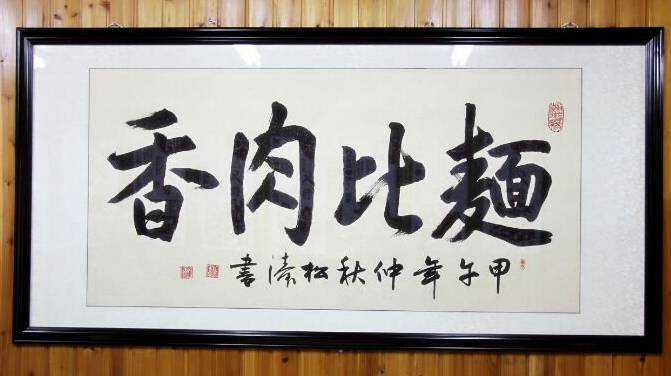 麵比肉香
甲午年仲秋松濤書